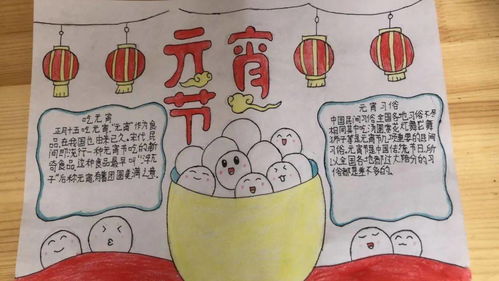 元宵节
吃元宵
正月十五吃元宵，"元宵"作为食
品，在我国也由来已久。宋代，民
间即流行一种元宵节吃的新
奇食品。这种食品最早叫"浮元
子"后称元宵，有团圆美满之意。
元宵习俗
中国民间习俗全国各地习俗不尽
相同其中吃汤圆赏花灯舞龙舞
狮子等是元宵节几项重要的民间
习俗。元宵节是中国传统节日，所
以全国各地都过大部分的习
俗都是差不多的。